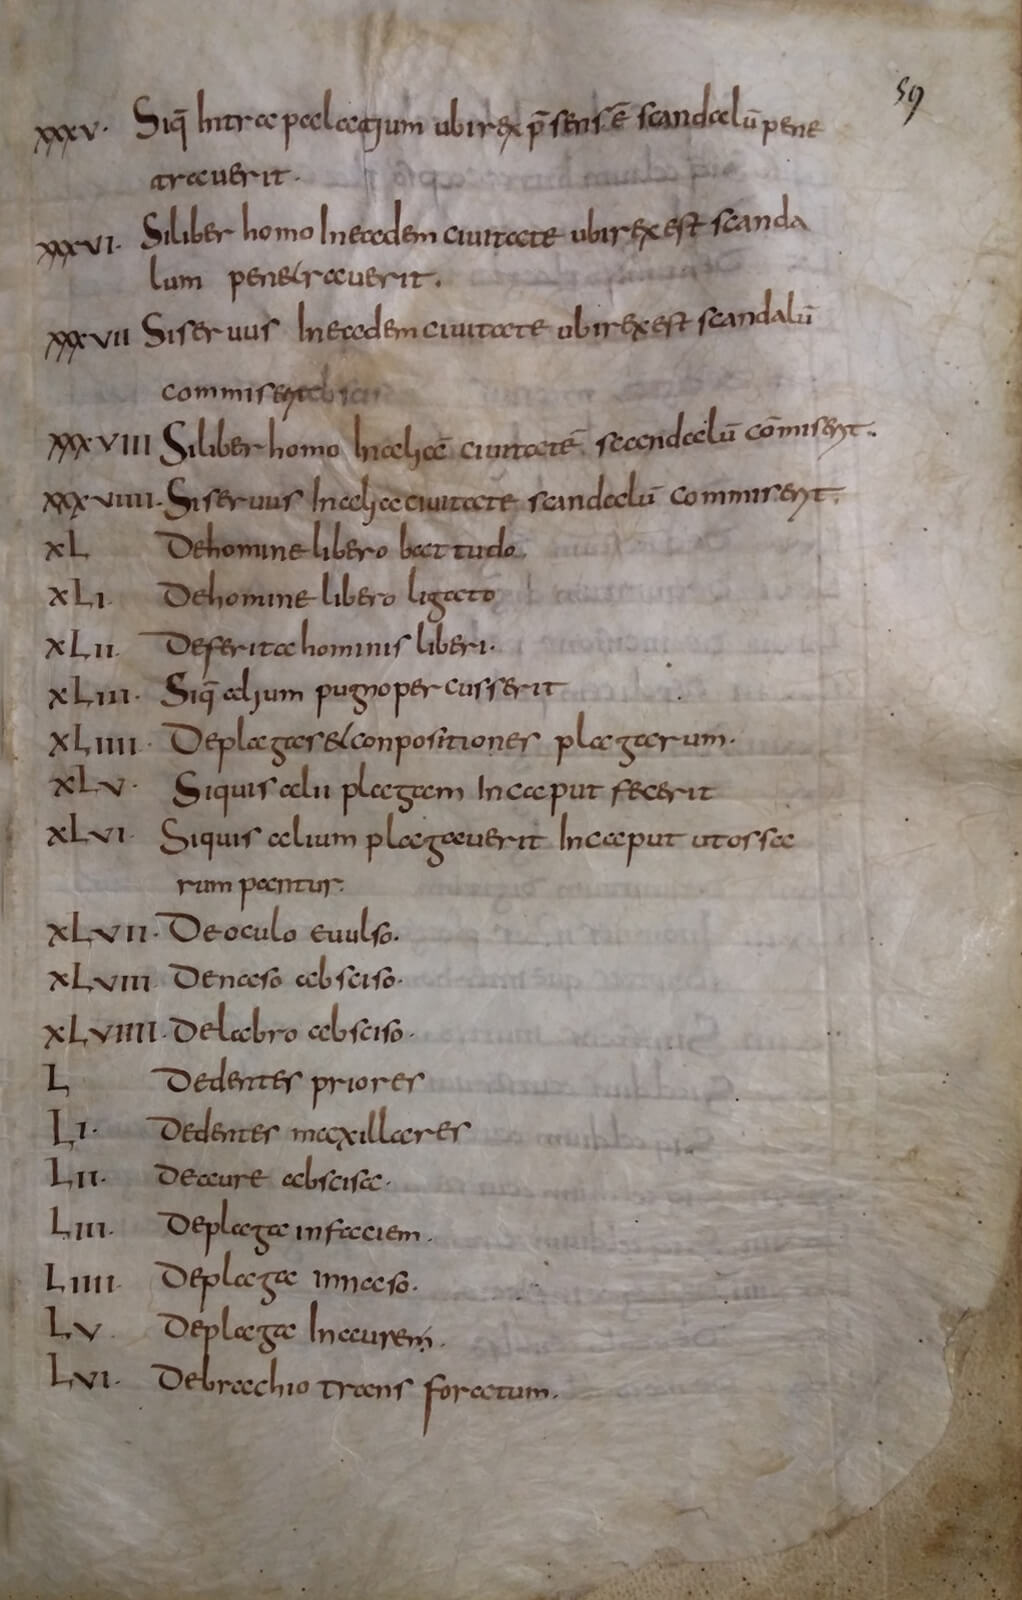 59
xxxv. Siq̄ Intra palatium ubirex p̄sens ē scandalū pene
traverit.
xxxvi. Siliber homo In eadem civitate ubirex est scanda
lum penetraverit.
xxxvii Siservus In eadem civitate ubirex est scandalū
commiserit
xxxviii Siliber homo In aliā civitatē scandalū cōmiserit.
xxxviiii. Siservus In alia civitate scandalū commiserit.
xL Dehomine libero battudo.
xLi. Dehomine libero ligato
xLii. Deferita hominis liberi.
xLiii. Siq̄ alium pugno percusserit
xLiiii. Deplagas & conpositiones plagarum.
xLv. Siquis alii plagam In caput fecerit
xLvi. Siquis alium plagaverit In caput ut ossa
rumpantur.
xLvii. De oculo evulso.
xLviii De naso absciso.
xLviiii. De labro absciso.
L De dentes priores
Li. De dentes maxillares
Lii. De aure abscisa.
Liii. De plaga in faciem.
Liiii. De plaga in naso.
Lv. De plaga In aurem.
Lvi. De brachio trans foratum.